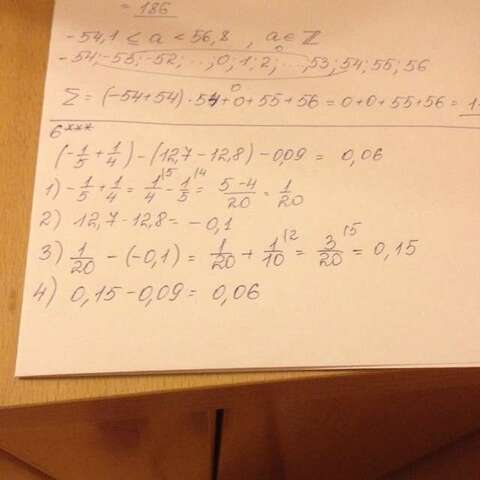 = 186
-54,1 ≤ a < 56,8 , a ∈ ℤ
0
-54; -53; -52; ...; 0; 1; 2; ...; 53; 54; 55; 56
0
Σ = (-54+54)·54+0+55+56 = 0+0+55+56 = 1
6***
(-1/5 + 1/4) - (12,7 - 12,8) - 0,09 = 0,06
1) -1/5 + 1/4 = 1/4 |5 - 1/5 |4 = 5-4/20 = 1/20
2) 12,7 - 12,8 = -0,1
3) 1/20 - (-0,1) = 1/20 + 1/10 |2 = 3/20 |5 = 0,15
4) 0,15 - 0,09 = 0,06